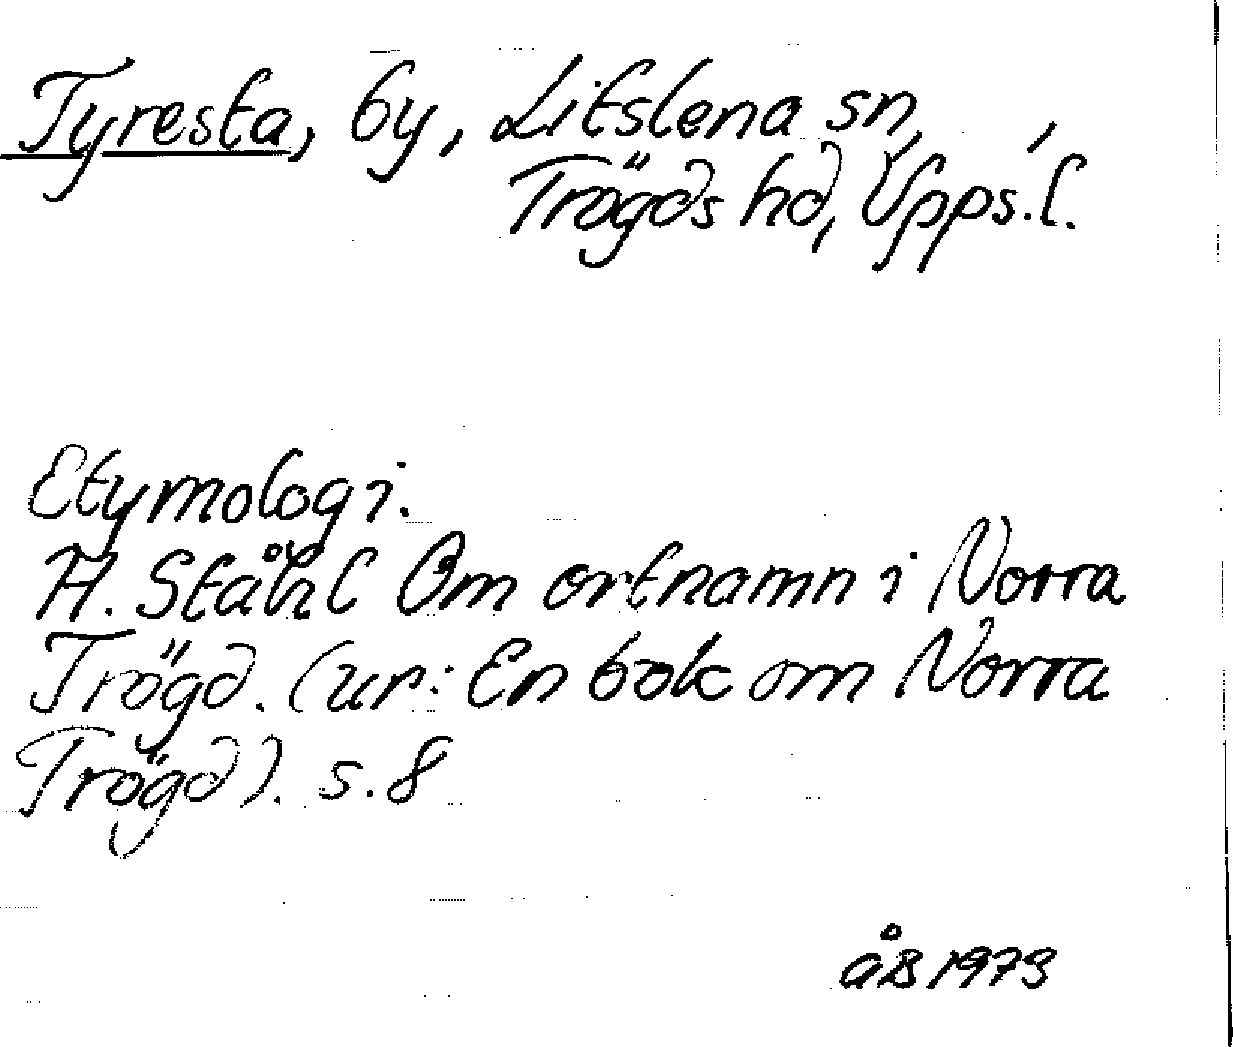 Tyresta, by, Litslena sn,
Trögds hd, Upps.l.
Etymologi.
H. Ståhl Om ortnamn i Norra
Trögd. (ur: En bok om Norra
Trögd). s.8
åB 1973